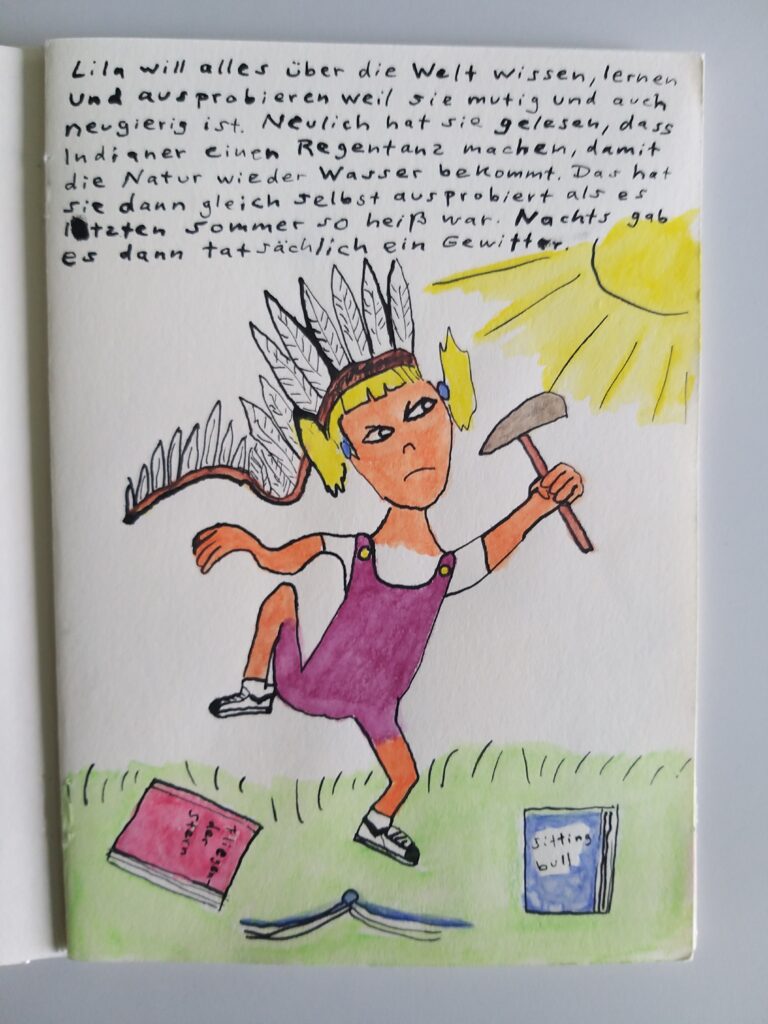 Lila will alles über die Welt wissen, lernen
und ausprobieren weil sie mutig und auch
neugierig ist. Neulich hat sie gelesen, dass
Indianer einen Regentanz machen, damit
die Natur wieder Wasser bekommt. Das hat
sie dann gleich selbst ausprobiert als es
letzten Sommer so heiß war. Nachts gab
es dann tatsächlich ein Gewitter.
Fliegen-
der
Stern
sitting
bull